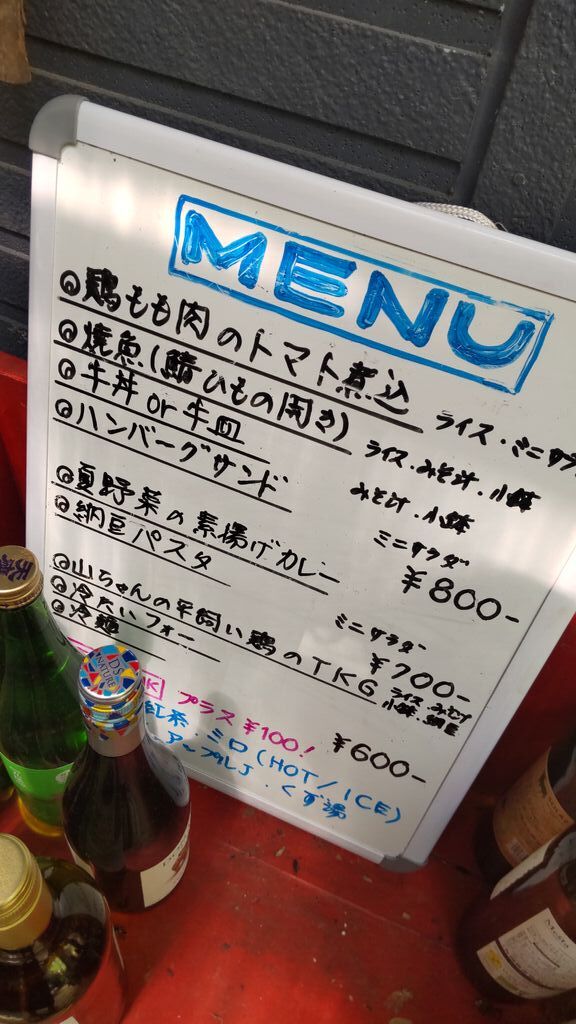 MENU
◎鶏もも肉のトマト煮込 ライス・ミニサラ
◎焼魚(鯖ひもの開き) ライス・みそ汁・小鉢
◎牛丼 or 牛皿 みそ汁・小鉢
◎ハンバーグサンド ミニサラダ
¥800-
◎夏野菜の素揚げカレー ミニサラダ
◎納豆パスタ
¥700-
◎山ちゃんの平飼い鶏のTKG ライス みそ汁 小鉢・納豆
◎冷たいフォー
◎冷麺
¥600-
K プラス ¥100!
紅茶・ミロ(HOT/ICE)
アップルJ・くず湯
DS NATURE